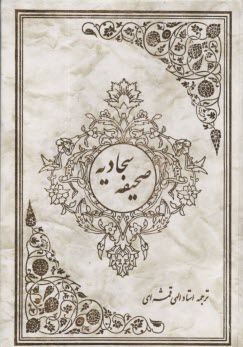 صحیفه سجادیه
ترجمه استاد الهی قمشه‌ای